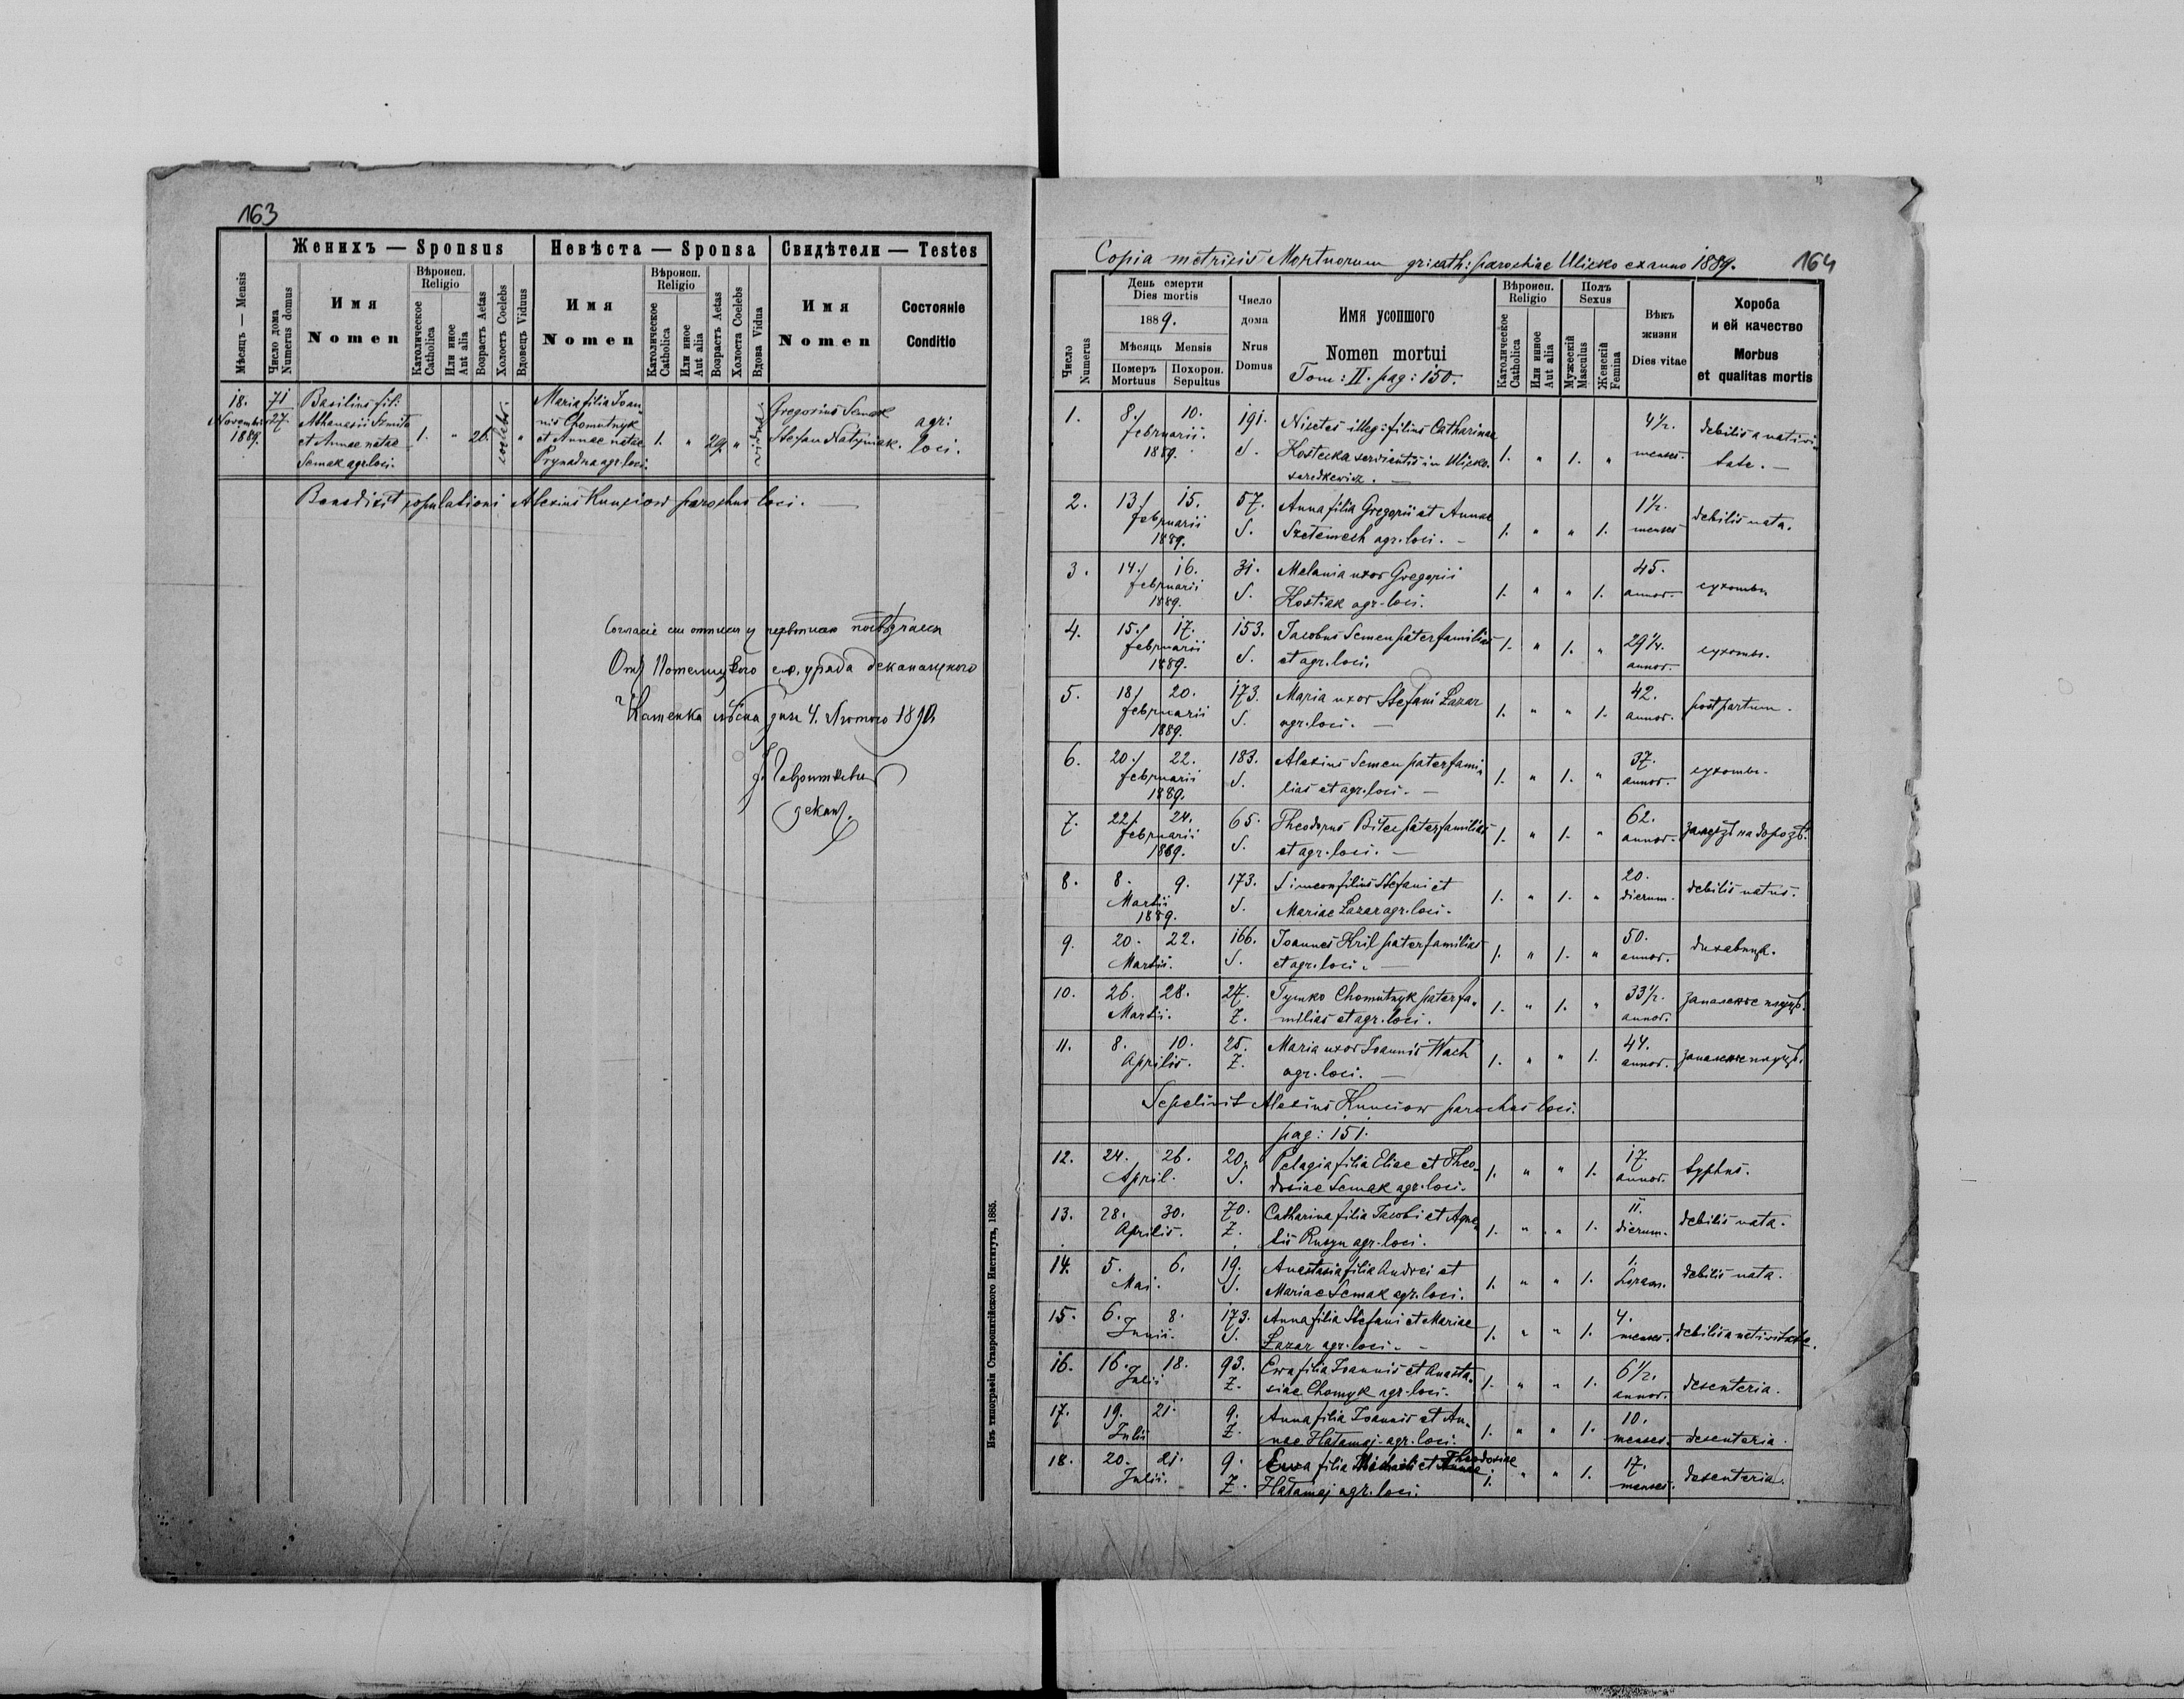 163
Женихъ — Sponsus
Невѣста — Sponsa
Свидѣтели — Testes
Мѣсяцъ — Mensis
Число дома
Numerus domus
Имя
Nomen
Вѣроисп.
Religio
Католическое
Catholica
Или иное
Aut alia
Возрастъ Aetas
Холостъ Coelebs
Вдовецъ Viduus
Имя
Nomen
Вѣроисп.
Religio
Католическое
Catholica
Или иное
Aut alia
Возрастъ Aetas
Холоста Coelebs
Вдова Vidua
Имя
Nomen
Состояніе
Conditio
18.
Novembris
1889.
71
27.
Basilius fil:
Athanasii
et Annae natae
Semak agr. loci.
1. „ 26. coelebs. „
Maria filia Joan
nis Chomutnyk
et Annae natae
agr. loci.
1. „ 29. „ vidua.
Gregorius Semak
Stefan Natyniak.
agr:
loci.
Benedixit copulationi Alexius Kunciow parochus loci. —
4. Лютого 1890
декан.
Изъ типографіи Ставропигійского Института, 1885.
Copia metricis Mortuorum gr: cath: parochiae Ulicko ex anno 1889.
164
Число
Numerus
День смерти
Dies mortis
1889.
Мѣсяць Mensis
Померъ
Mortuus
Похорон.
Sepultus
Число
дома
Nrus
Domus
Имя усопшого
Nomen mortui
Tom: II. pag: 150.
Вѣроисп.
Religio
Католическое
Catholica
Или инное
Aut alia
Полъ
Sexus
Мужескій
Masculus
Женскій
Femina
Вѣкъ
жизни
Dies vitae
Хороба
и ей качество
Morbus
et qualitas mortis
1. 8./ 10. 191. Nicetes illeg: filius Catharinae 4½. debilis a nativi
februarii. S. Kostecka servientis in Ulicko 1. „ 1. „ menses. tate. —
1889. seredkewicz. —
2. 13./ 15. 57. Anna filia Gregorii et Annae 1½. debilis nata.
februarii S. agr. loci. — 1. „ „ 1. menses
1889.
3. 14./ 16. 31. Melania uxor Gregorii 45. сухоты
februarii S. Kostiak agr. loci. 1. „ „ 1. annor.
1889.
4. 15./ 17. 153. Jacobus Semen paterfamilias 1. „ 1. „ 29¼. сухоты.
februarii S. et agr. loci. annor.
1889.
5. 18./ 20. 173. Maria uxor Stefani Łazar 42. post partum.
februarii S. agr. loci. — 1. „ „ 1. annor.
1889.
6. 20./ 22. 183. Alexius Semen paterfami 37. сухоты.
februarii S. lias et agr. loci. — 1. „ 1. „ annor.
1889.
7. 22./ 24. 65. Theodorus paterfamilias 62. на дорозѣ.
februarii S. et agr. loci. — 1. „ 1. „ annor.
1889.
8. 8. 9. 173. Simeon filius Stefani et 20. debilis natus.
Martii S. Mariae Łazar agr. loci. 1. „ 1. „ dierum.
1889.
9. 20. 22. 166. Joannes Kril paterfamilias 50. дихавица.
Martii. S. et agr. loci. — 1. „ 1. „ annor.
10. 26. 28. 27. Tymko Chomutnyk paterfa 33½. запаленье плуцъ.
Martii. Z. milias et agr. loci. 1. „ 1. „ annor.
11. 8. 10. 25. Maria uxor Joannis Wach 44. запаленье плуцъ.
Aprilis. Z. agr. loci. — 1. „ „ 1. annor.
Sepelivit Alexius Kunciow parochus loci.
pag: 151.
12. 24. 26. 20. Pelagia filia Eliae et Theo 17 typhus.
April. S. dosiae Semak agr. loci. 1. „ „ 1. annor.
13. 28. 30. 70. Catharina filia Jacobi et Agne 11. debilis nata.
Aprilis. Z. tis Rusyn agr. loci. 1. „ „ 1. dierum.
14. 5. 6. 19. Anastasia filia Andrei et 1. debilis nata.
Mai. S. Mariae Semak agr. loci. 1. „ „ 1.
15. 6. 8. 173. Anna filia Stefani et Mariae 4. debilis a nativitate.
Junii. S. Łazar agr. loci. — 1. „ „ 1. menses.
16. 16. 18. 93. Ewa filia Joannis et Anasta 6½. desenteria.
Julii Z. siae Chomyk agr. loci. 1. „ „ 1. annor.
17. 19. 21. 9. Anna filia Joannis et An 10. desenteria.
Julii Z. nae Hałamaj agr. loci. 1. „ „ 1. menses.
18. 20. 21. 9. Ewa filia Michaeli et Theodosiae 17. desenteria.
Julii. Z. Hałamaj agr. loci. 1. „ „ 1. menses.